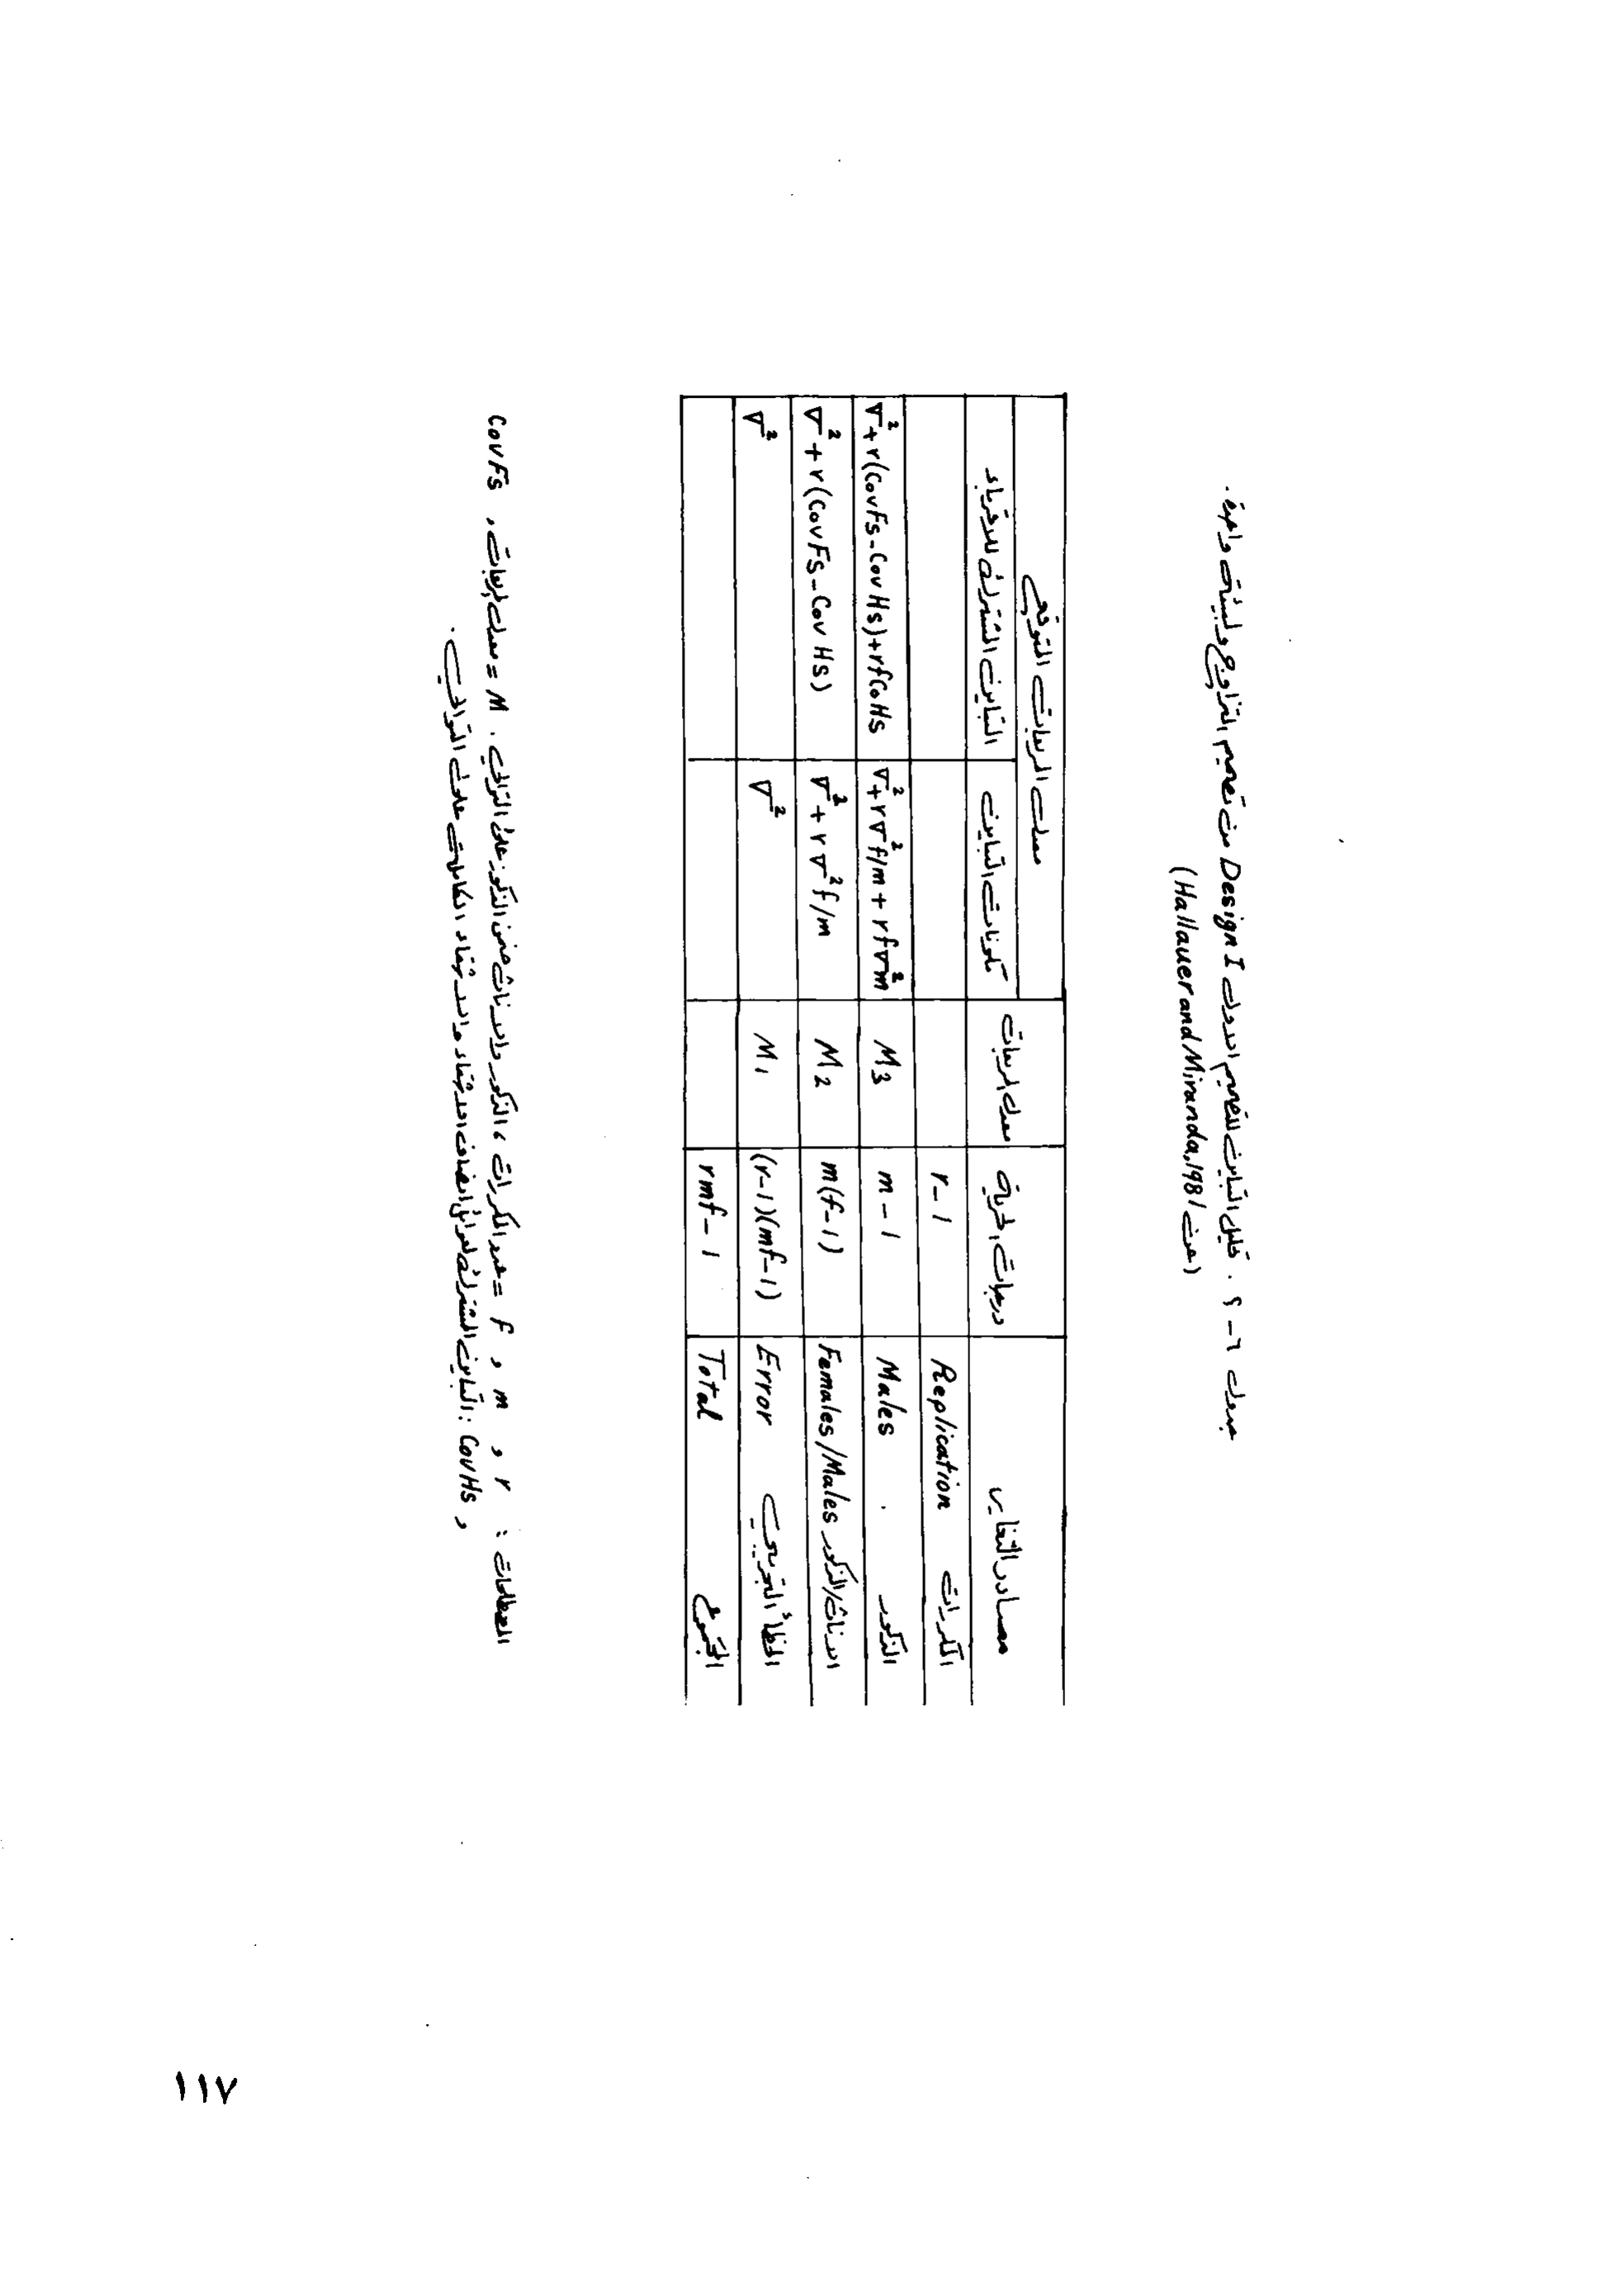 جدول ٦ – ٩ . تحليل التباين للتصميم الاول Design I من تصميم التزاوج ولبيئة واحدة .
(عن Hallauer and Miranda, 1981)
مصادر التغاير | درجات الحرية | معدل المربعات | معدل المربعات المتوقع
مكونات التباين | التباين المشترك للاقرباء
المكررات Replication | r-1
الذكور Males | m-1 | M3 | ∇²+r∇²f/m+rf∇²m | ∇²+r(CovFs-CovHs)+rfCoHs
الاناث/الذكور Females/Males | m(f-1) | M2 | ∇²+r∇²f/m | ∇²+r(CovFs-CovHs)
الخطأ التجريبي Error | (r-1)(mf-1) | M1 | ∇² | ∇²
المجموع Total | rmf-1
المصطلحات : r , m , f = عدد المكررات ، الذكور والاناث ضمن الذكور على التوالي . M = معدل المربعات , CovFs
, CovHs : التباين المشترك لعوائل انصاف الاشقاء والاشقاء الكاملة على التوالي .
١١٧